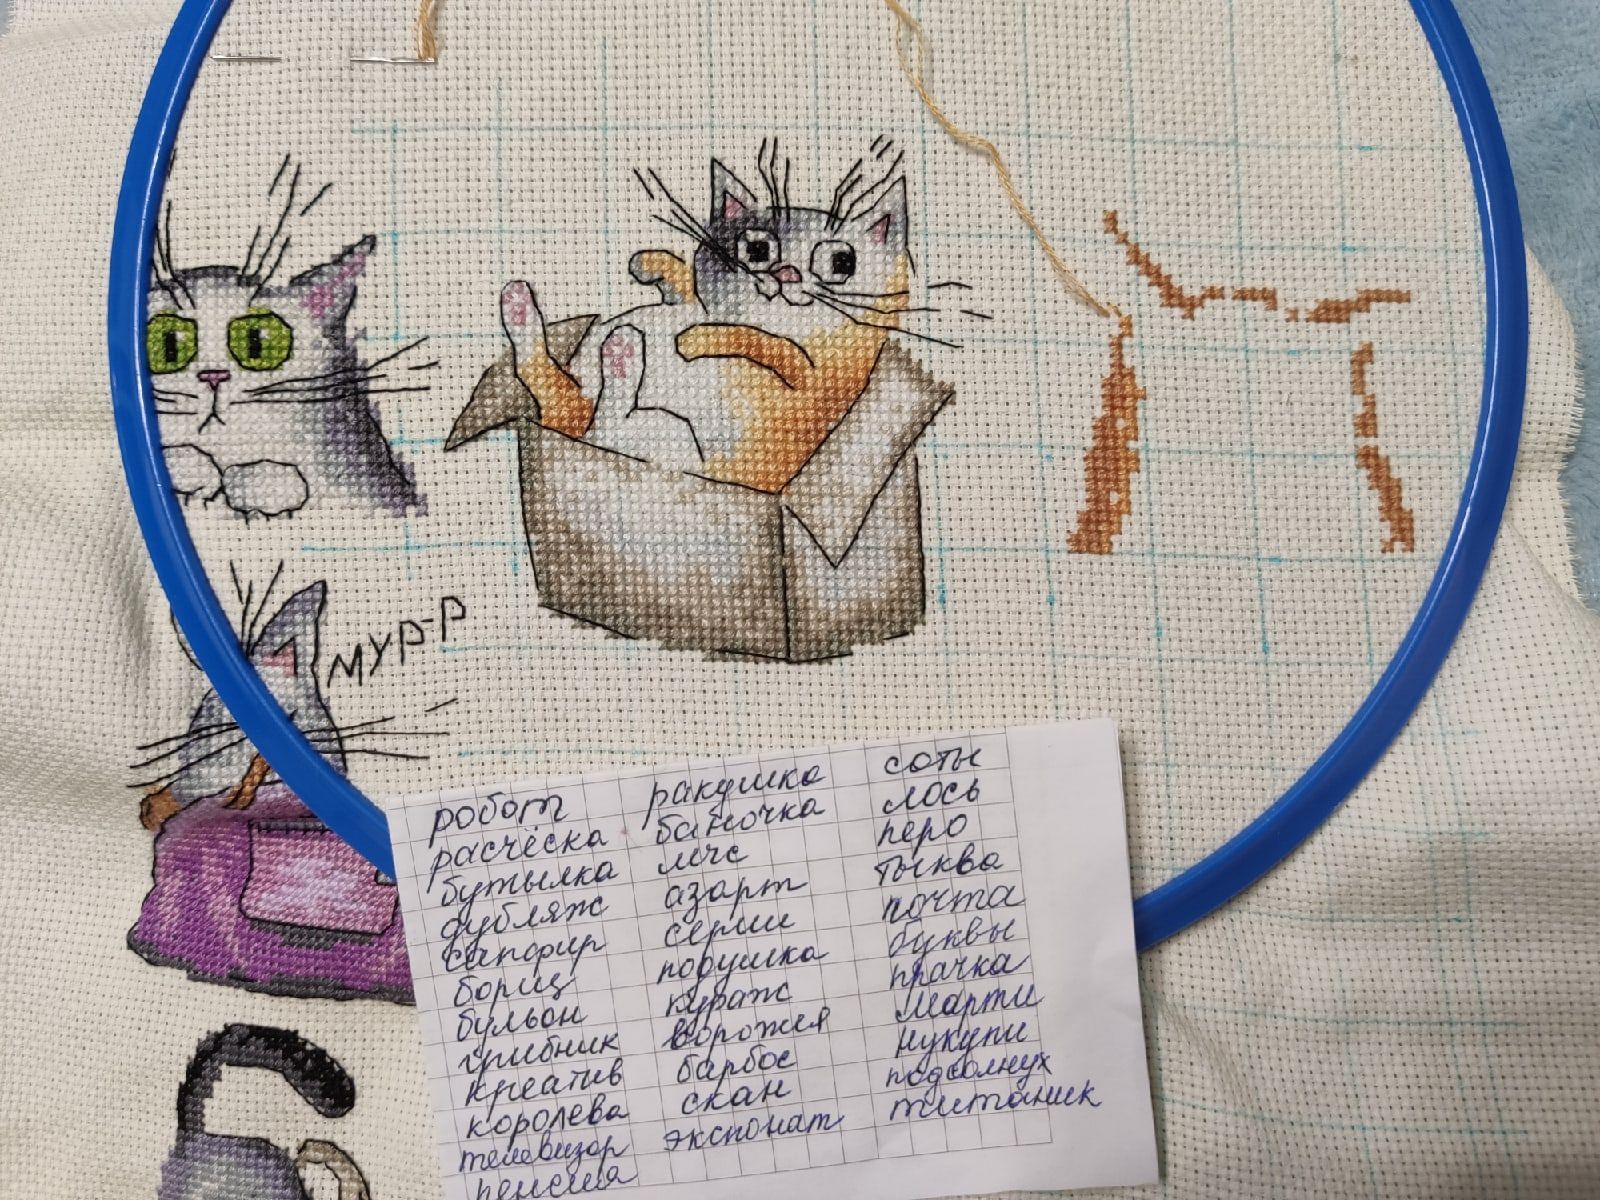 МУР-Р
робот
расчёска
бутылка
дубляж
сапфир
борщ
бульон
грибник
креатив
королева
телевизор
пенсия
ракушка
баночка
азарт
серии
подушка
кураж
ворожея
барбос
скан
экспонат
соты
лось
перо
тыква
почта
буквы
прачка
Марти
нукупи
подсолнух
титаник